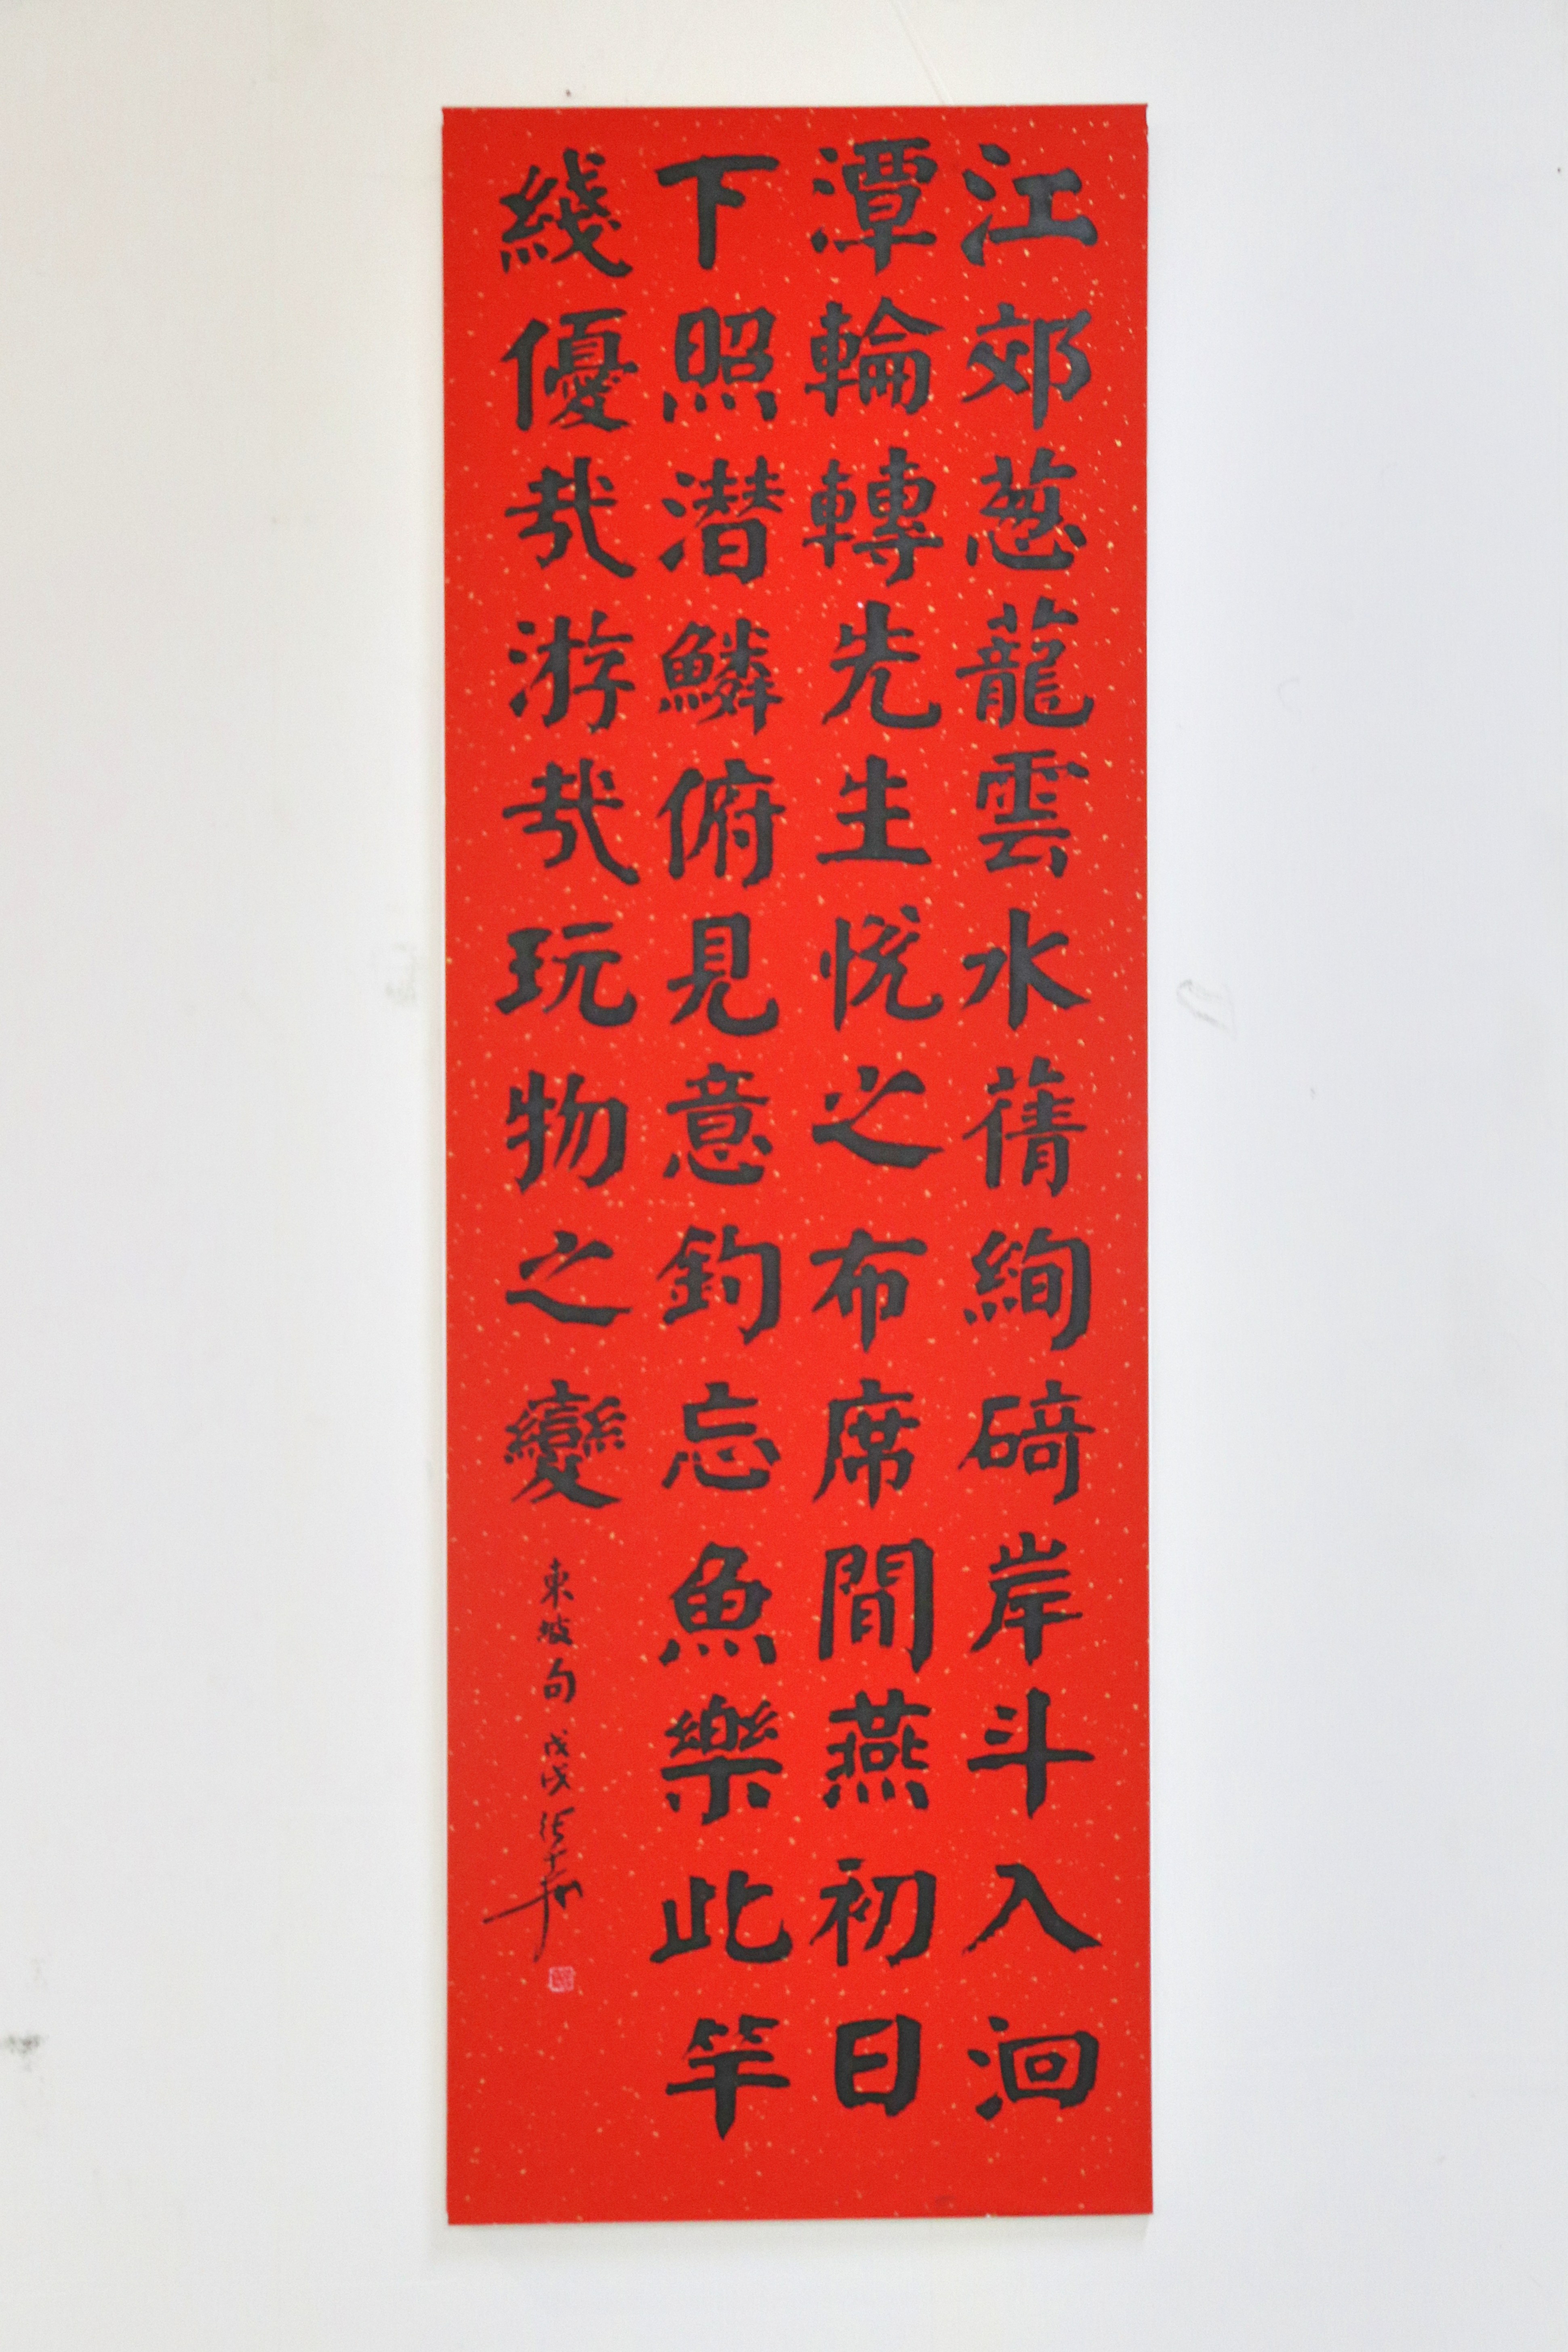 江郊葱蘢雲水蒨絢碕岸斗入洄
潭輪轉先生悅之布席閒燕初日
下照潛鱗俯見意釣忘魚樂此竿
綫優哉游哉玩物之變
東坡句 戊戌